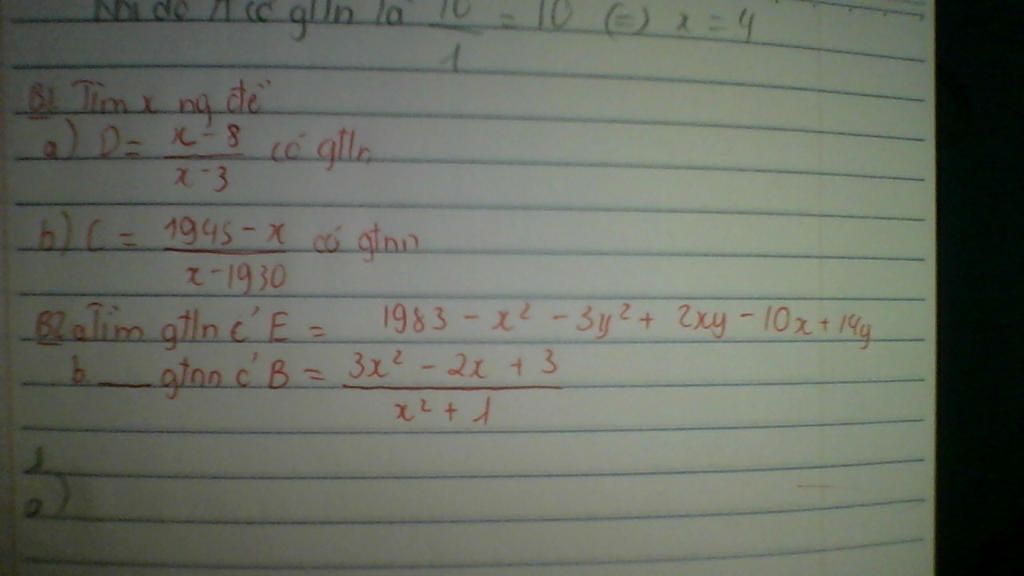 Khi đó A có gtln là 10/1 = 10 (=) x = 4
B1 Tìm x ng để
a) D = (x - 8)/(x - 3) có gtln
b) C = (1945 - x)/(x - 1930) có gtnn
B2 a Tìm gtln c' E = 1983 - x² - 3y² + 2xy - 10x + 14y
b. ___ gtnn c' B = (3x² - 2x + 3)/(x² + 1)
1
a)